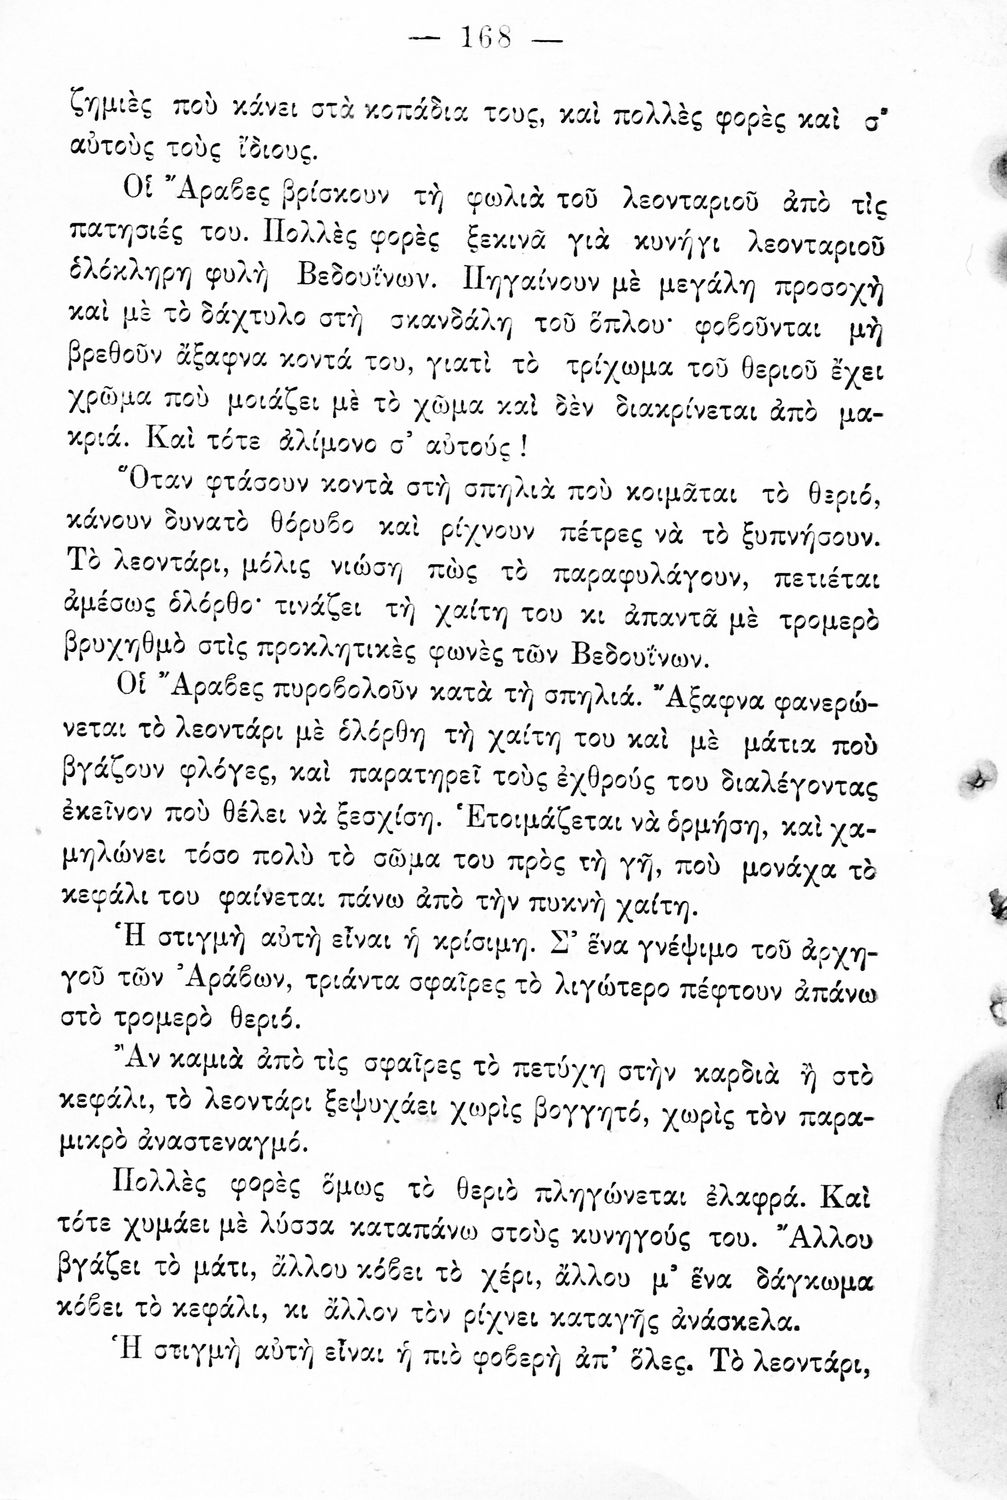 — 168 —
ζημιὲς ποὺ κάνει στὰ κοπάδια τους, καὶ πολλὲς φορὲς καὶ σ'
αὐτοὺς τοὺς ἴδιους.
Οἱ Ἄραβες βρίσκουν τὴ φωλιὰ τοῦ λεονταριοῦ ἀπὸ τὶς
πατησιές του. Πολλὲς φορὲς ξεκινᾶ γιὰ κυνήγι λεονταριοῦ
ὁλόκληρη φυλὴ Βεδουΐνων. Πηγαίνουν μὲ μεγάλη προσοχὴ
καὶ μὲ τὸ δάχτυλο στὴ σκανδάλη τοῦ ὅπλου· φοβοῦνται μὴ
βρεθοῦν ἄξαφνα κοντά του, γιατὶ τὸ τρίχωμα τοῦ θεριοῦ ἔχει
χρῶμα ποὺ μοιάζει μὲ τὸ χῶμα καὶ δὲν διακρίνεται ἀπὸ μα-
κριά. Καὶ τότε ἀλίμονο σ' αὐτούς !
Ὅταν φτάσουν κοντὰ στὴ σπηλιὰ ποὺ κοιμᾶται τὸ θεριό,
κάνουν δυνατὸ θόρυβο καὶ ρίχνουν πέτρες νὰ τὸ ξυπνήσουν.
Τὸ λεοντάρι, μόλις νιώση πὼς τὸ παραφυλάγουν, πετιέται
ἀμέσως ὁλόρθο· τινάζει τὴ χαίτη του κι ἀπαντᾶ μὲ τρομερὸ
βρυχηθμὸ στὶς προκλητικὲς φωνὲς τῶν Βεδουΐνων.
Οἱ Ἄραβες πυροβολοῦν κατὰ τὴ σπηλιά. Ἄξαφνα φανερώ-
νεται τὸ λεοντάρι μὲ ὁλόρθη τὴ χαίτη του καὶ μὲ μάτια ποὺ
βγάζουν φλόγες, καὶ παρατηρεῖ τοὺς ἐχθρούς του διαλέγοντας
ἐκεῖνον ποὺ θέλει νὰ ξεσχίση. Ἑτοιμάζεται νὰ ὁρμήση, καὶ χα-
μηλώνει τόσο πολὺ τὸ σῶμα του πρὸς τὴ γῆ, ποὺ μονάχα τὸ
κεφάλι του φαίνεται πάνω ἀπὸ τὴν πυκνὴ χαίτη.
Ἡ στιγμὴ αὐτὴ εἶναι ἡ κρίσιμη. Σ' ἕνα γνέψιμο τοῦ ἀρχη-
γοῦ τῶν Ἀράβων, τριάντα σφαῖρες τὸ λιγώτερο πέφτουν ἀπάνω
στὸ τρομερὸ θεριό.
Ἂν καμιὰ ἀπὸ τὶς σφαῖρες τὸ πετύχη στὴν καρδιὰ ἢ στὸ
κεφάλι, τὸ λεοντάρι ξεψυχάει χωρὶς βογγητό, χωρὶς τὸν παρα-
μικρὸ ἀναστεναγμό.
Πολλὲς φορὲς ὅμως τὸ θεριὸ πληγώνεται ἐλαφρά. Καὶ
τότε χυμάει μὲ λύσσα καταπάνω στοὺς κυνηγούς του. Ἄλλου
βγάζει τὸ μάτι, ἄλλου κόβει τὸ χέρι, ἄλλου μ' ἕνα δάγκωμα
κόβει τὸ κεφάλι, κι ἄλλον τὸν ρίχνει καταγῆς ἀνάσκελα.
Ἡ στιγμὴ αὐτὴ εἶναι ἡ πιὸ φοβερὴ ἀπ' ὅλες. Τὸ λεοντάρι,